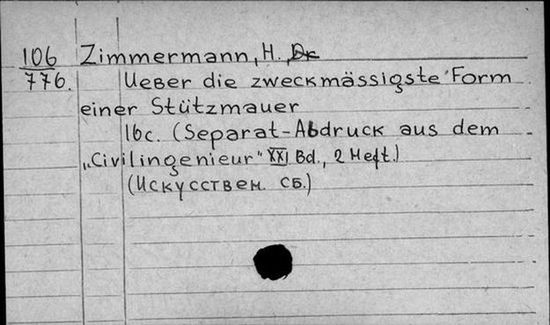 106 Zimmermann, H., Dr.
776. Ueber die zweckmässigste Form
einer Stützmauer
16c. (Separat-Abdruck aus dem
„Civilingenieur" XXI Bd., 2 Heft.)
(Искусствен. сб.)